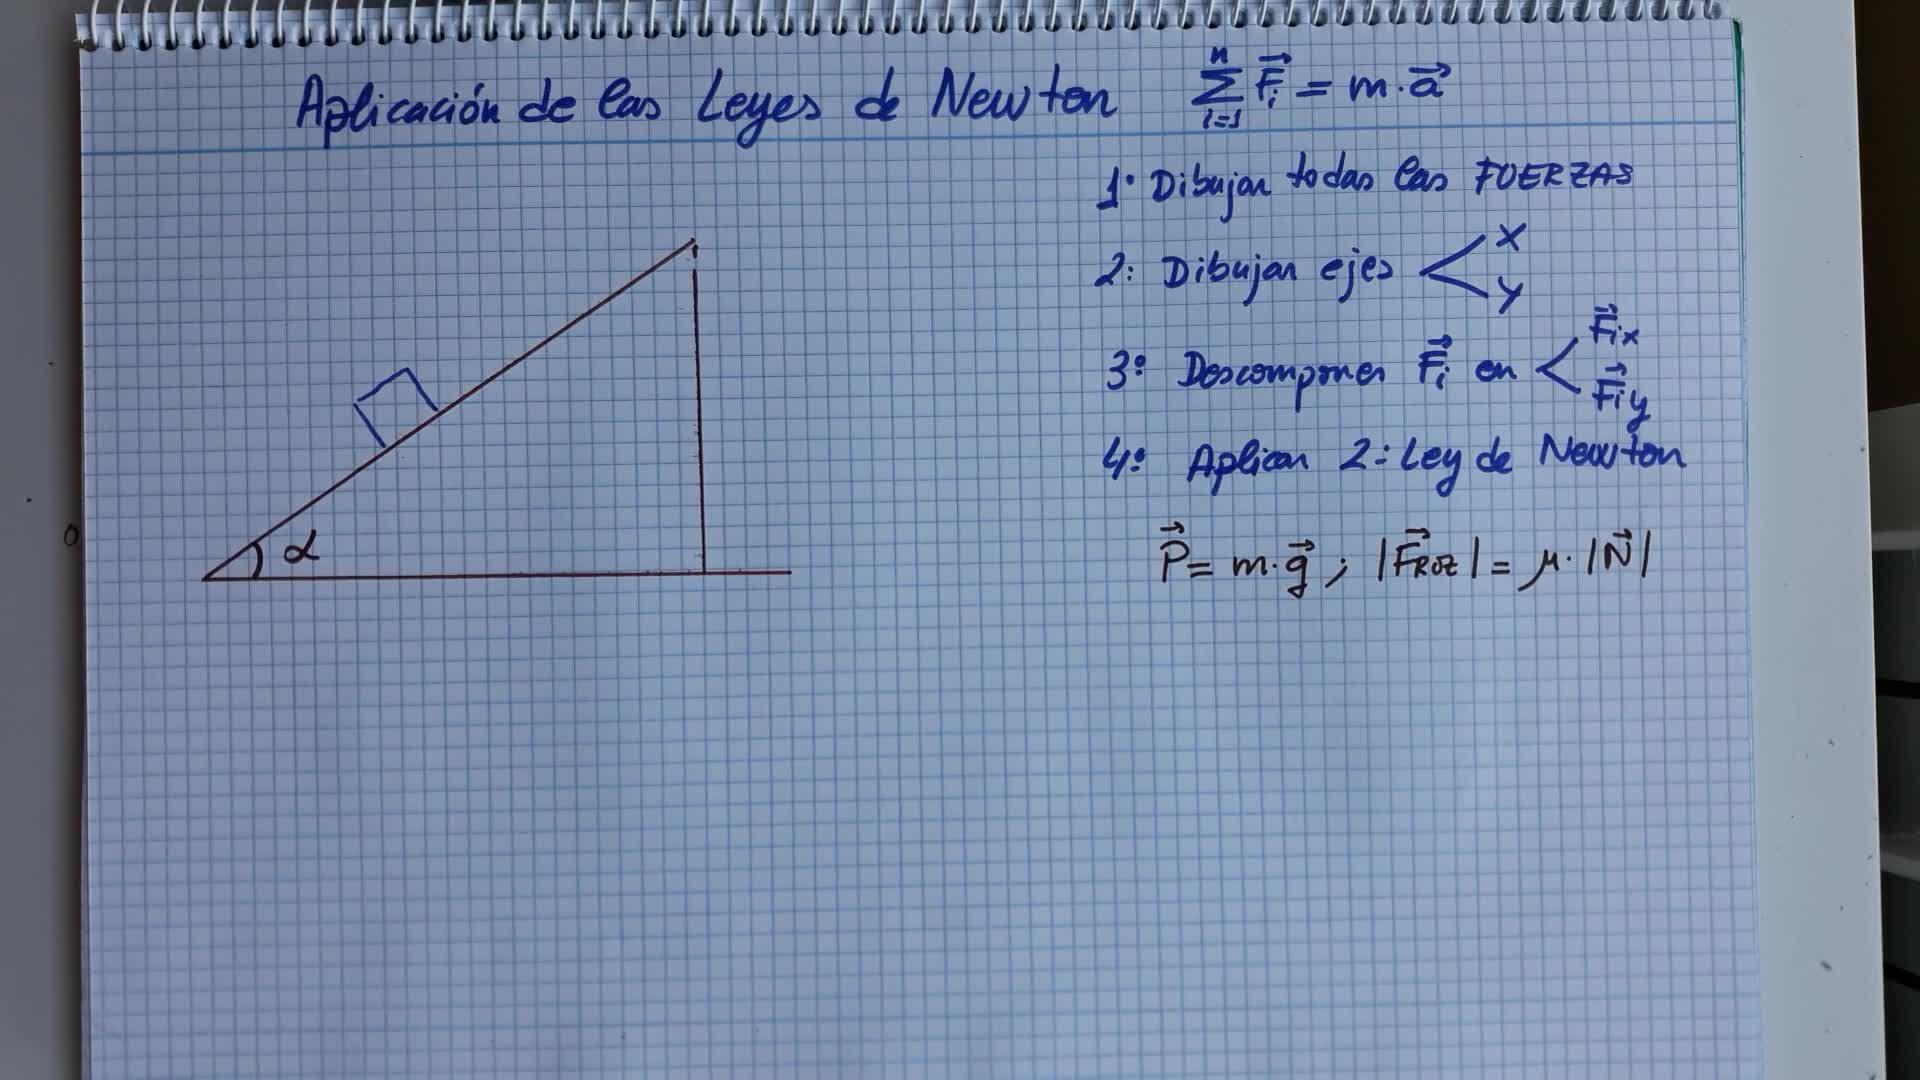 Aplicación de las Leyes de Newton $\sum_{i=1}^{n} \vec{F}_i = m \cdot \vec{a}$
1º Dibujar todas las FUERZAS
2º Dibujar ejes < X Y
3º Descomponer $\vec{F}_i$ en < $\vec{F}_{ix}$ $\vec{F}_{iy}$
4º Aplicar 2ª Ley de Newton
$\vec{P} = m \cdot \vec{g}$ ; $|\vec{F}_{ROZ}| = \mu \cdot |\vec{N}|$
α